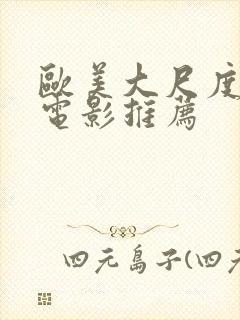 歐美大尺度
電影推薦
四元島子(四元